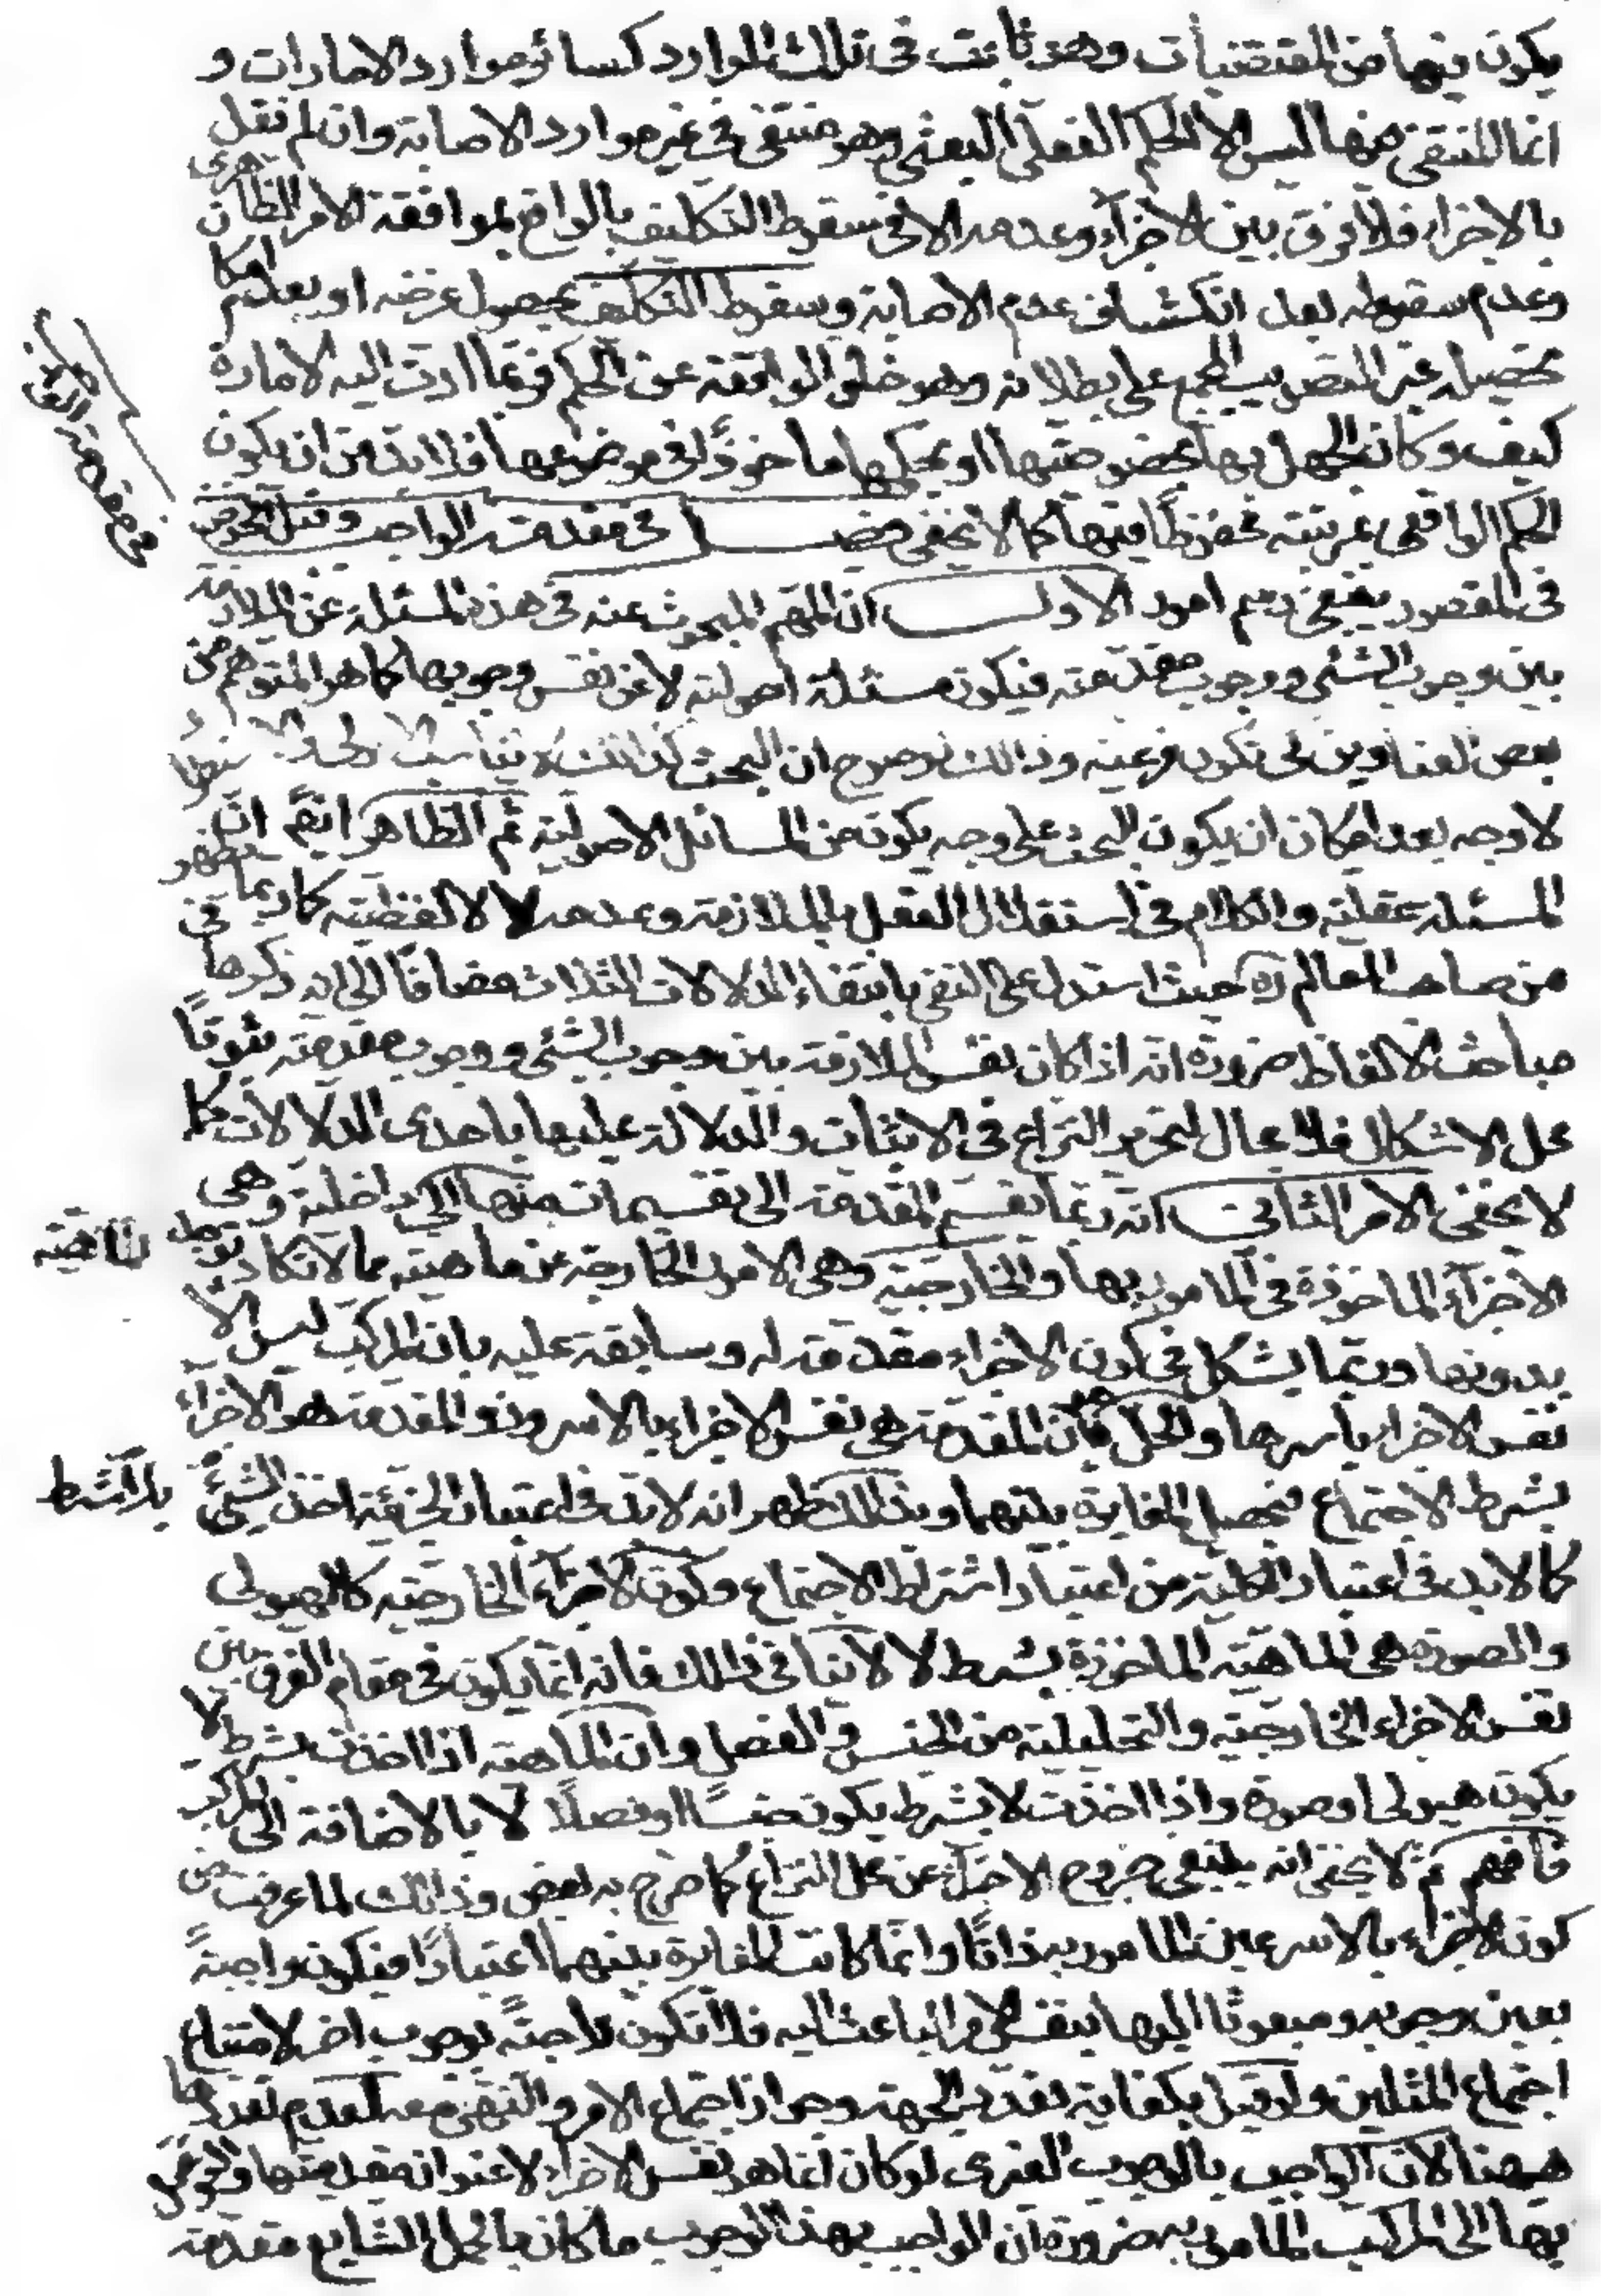 يكون فيها من المقتضيات وهو ثابت فى تلك الموارد كسائر موارد الامارات و
انما المنتفى منها ليس الا الحكم الفعلى البعثى وهو منتفى فى غير موارد الاصابة وان لم نقل
بالاجزاء فلا فرق بين الاجزاء وعدمه الا فى سقوط التكليف بالواقع بموافقة الامر الظاهرى
وعدم سقوطه بعد انكشاف عدم الاصابة وسقوط التكليف بحصول غرضه او بعدم امكان
تحصيله غير التصويب المجمع على بطلانه وهو خلو الواقعة عن الحكم غير ما ادت اليه الامارة
كيف وكان الجهل بها بخصوصيتها او بحكمها ماخوذًا فى موضوعها فلا بد من ان يكون
الحكم الواقعى بمرتبته محفوظًا فيها كما لا يخفى فصل فى مقدمة الواجب وقبل الخوض
فى المقصود ينبغى رسم امور الاول ان المهم المبحوث عنه فى هذه المسئلة عن الملازمة
بين وجوب الشئ ووجوب مقدمته فيكون مسئلة اصولية لا عن نفس وجوبها كما هو المتوهم من
بعض العناوين لى تكون فرعية وذالك لوضوح ان البحث كذالك لا يناسب
لا وجه بعد امكان ان يكون البحث على وجه يكون من المسائل الاصولية ثم الظاهر ايضًا ان
المسئلة عقلية والكلام فى استقلال العقل بالملازمة وعدمه لا لفظية كما ربما يظهر
من صاحب المعالم ره حيث استدل على النفى بانتفاء الدلالات الثلاث مضافًا الى انه ذكرها فى
مباحث الالفاظ ضرورة انه اذا كان نفس الملازمة بين وجوب الشئ ووجوب مقدمته ثبوتًا
محل الاشكال فلا مجال لتحرير النزاع فى الاثبات والدلالة عليها باحدى الدلالات كما
لا يخفى الامر الثانى انه ربما تقسم المقدمة الى تقسيمات منها الى داخلية وهى
الاجزاء الماخوذة فى المامور بها والخارجية وهى الامور الخارجة عن ماهيته مما لا تكاد توجد الماهية
بدونها وربما يشكل فى كون الاجزاء مقدمة له وسابقة عليه بان المركب ليس الا
نفس الاجزاء باسرها والحل ان المقدمة هى نفس الاجزاء بالاسر وذو المقدمة هو الاجزاء
بشرط الاجتماع فيحصل المغايرة بينهما وبذالك ظهر انه لا بد فى اعتبار الجزئية اخذ الشئ بلا شرط
كما لا بد فى اعتبار الكلية من اعتبار اشتراط الاجتماع وكون الاجزاء الخارجية كالهيولى
والصورة هى الماهية الماخوذة بشرط لا لا ينافى ذالك فانه انما يكون فى مقام الفرق بين
نفس الاجزاء الخارجية والتحليلية من الجنس والفصل وان الماهية اذا اخذت بشرط لا
يكون هيولى او صورة واذا اخذت لا بشرط يكون جنسًا او فصلًا لا بالاضافة الى المركب
فافهم ثم لا يخفى انه ينبغى خروج الاجزاء عن محل النزاع كما صرح به بعض وذالك لما عرفت من
كون الاجزاء بالاسر عين المامور به ذاتًا وانما كانت المغايرة بينهما اعتبارًا فيكون واجبةً
بعين وجوبه ومبعوثًا اليها بنفس الامر الباعث اليه فلا تكون واجبةً بوجوب اخر لامتناع
اجتماع المثلين ولو قيل بكفاية تعدد الجهة وجواز اجتماع الامر والنهى معه لعدم تعددها
ههنا لان الواجب بالوجوب الغيرى لو كان انما هو نفس الاجزاء لا عنوان مقدميتها والتوصل
بها الى المركب المامور به ضرورة ان الواجب بهذا الوجوب ما كان بالحمل الشايع مقدمة
فى مقدمة الواجب